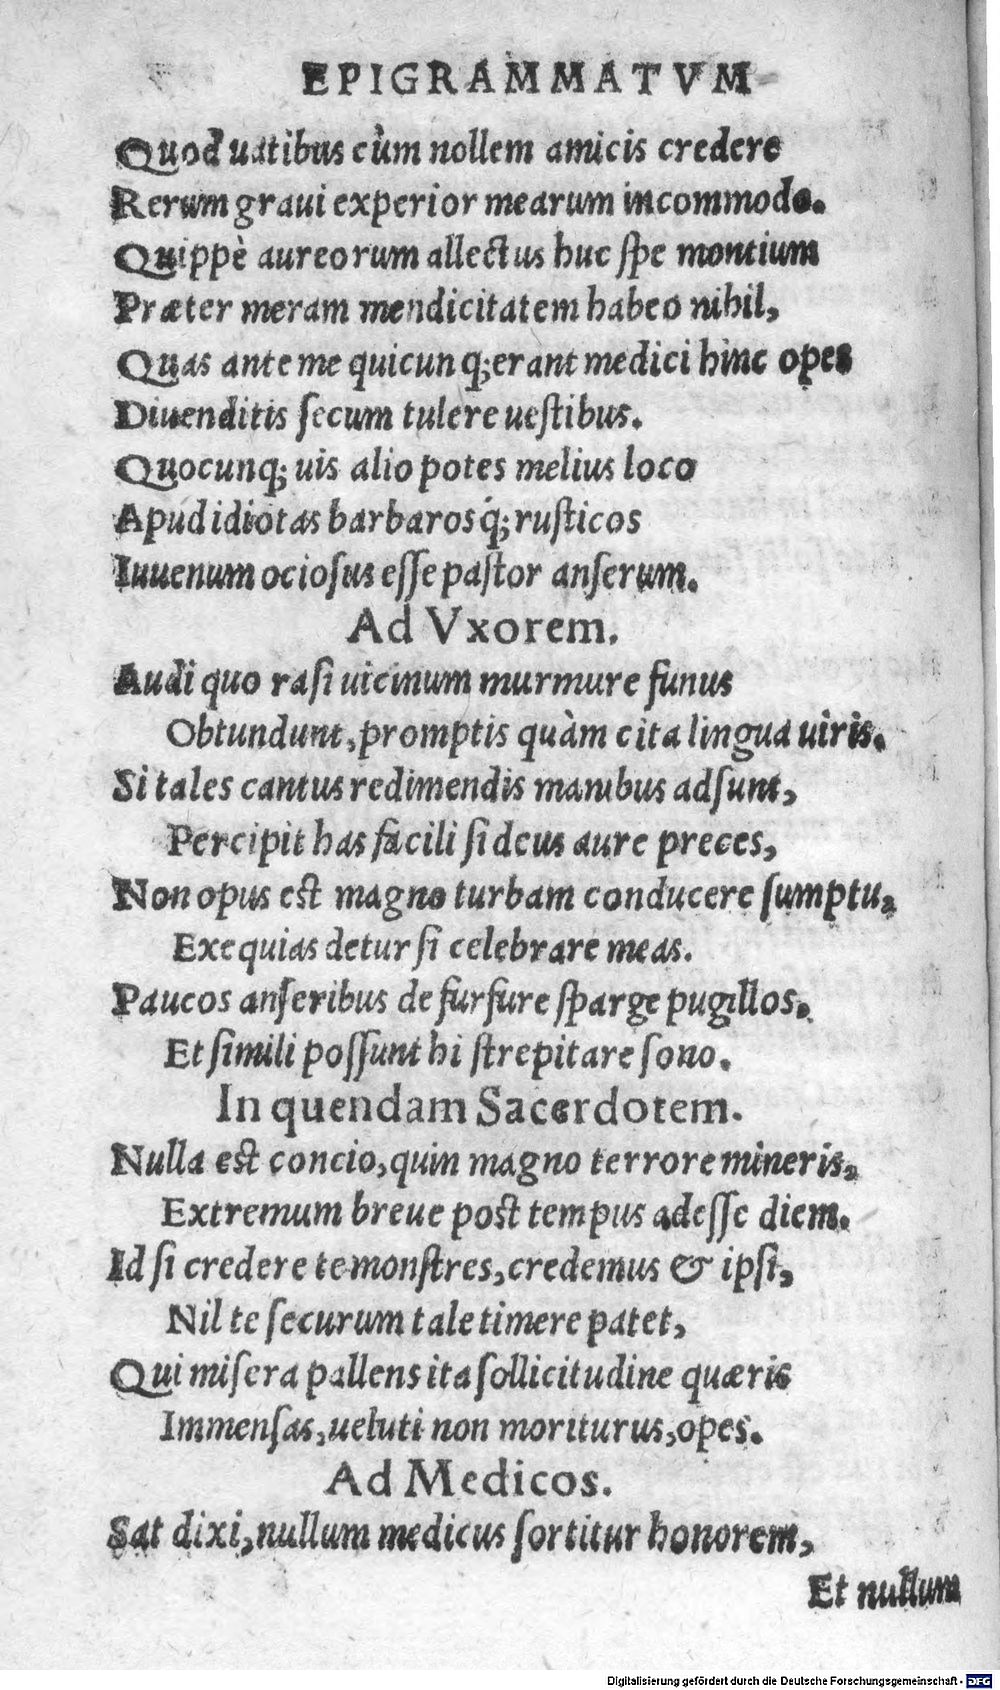 EPIGRAMMATVM
Quod uatibus cùm nollem amicis credere
Rerum graui experior mearum incommodo.
Quippè aureorum allectus huc ſpe montium
Præter meram mendicitatem habeo nihil,
Quas ante me quicunq; erant medici hinc opes
Diuenditis ſecum tulere ueſtibus.
Quocunq; uis alio potes melius loco
Apud idiotas barbaros q́; ruſticos
Iuuenum ocioſus eſſe paſtor anſerum.
Ad Vxorem.
Audi quo raſi uicinum murmure funus
Obtundunt, promptis quàm cita lingua uiris.
Si tales cantus redimendis manibus adſunt,
Percipit has facili ſi deus aure preces,
Non opus est magno turbam conducere ſumptu,
Exequias detur ſi celebrare meas.
Paucos anſeribus de furfure ſparge pugillos.
Et ſimili poſſunt hi ſtrepitare ſono.
In quendam Sacerdotem.
Nulla est concio, quin magno terrore mineris,
Extremum breue post tempus adeſſe diem.
Id ſi credere te monſtres, credemus & ipſi,
Nil te ſecurum tale timere patet,
Qui miſera pallens ita ſollicitudine quæris
Immenſas, ueluti non moriturus, opes.
Ad Medicos.
Sat dixi, nullum medicus ſortitur honorem,
Et nullum
Digitalisierung gefördert durch die Deutsche Forschungsgemeinschaft - DFG